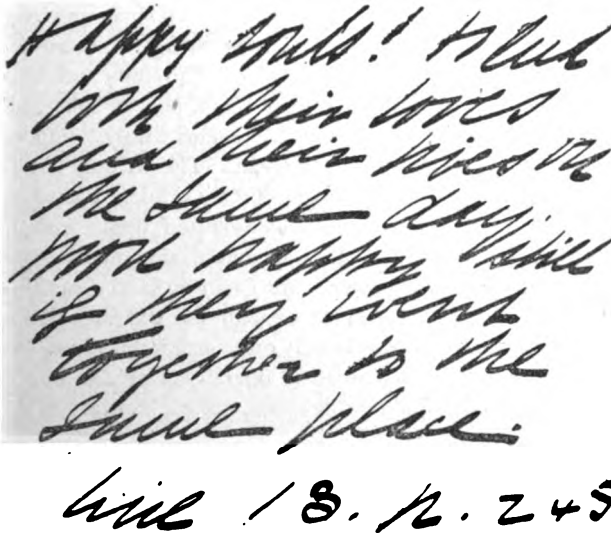 Happy souls! to end
both their loves
and their lives on
the same day.
more happy still
if they went
together to the
same place.
line 18. p. 245